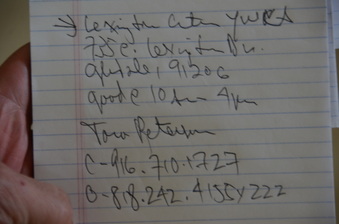 → Lexington Center YWCA
735 E. Lexington Dr.
91206
10 4pm
Tara Peterson
C-916.710.1727
O-818.242.4155x222